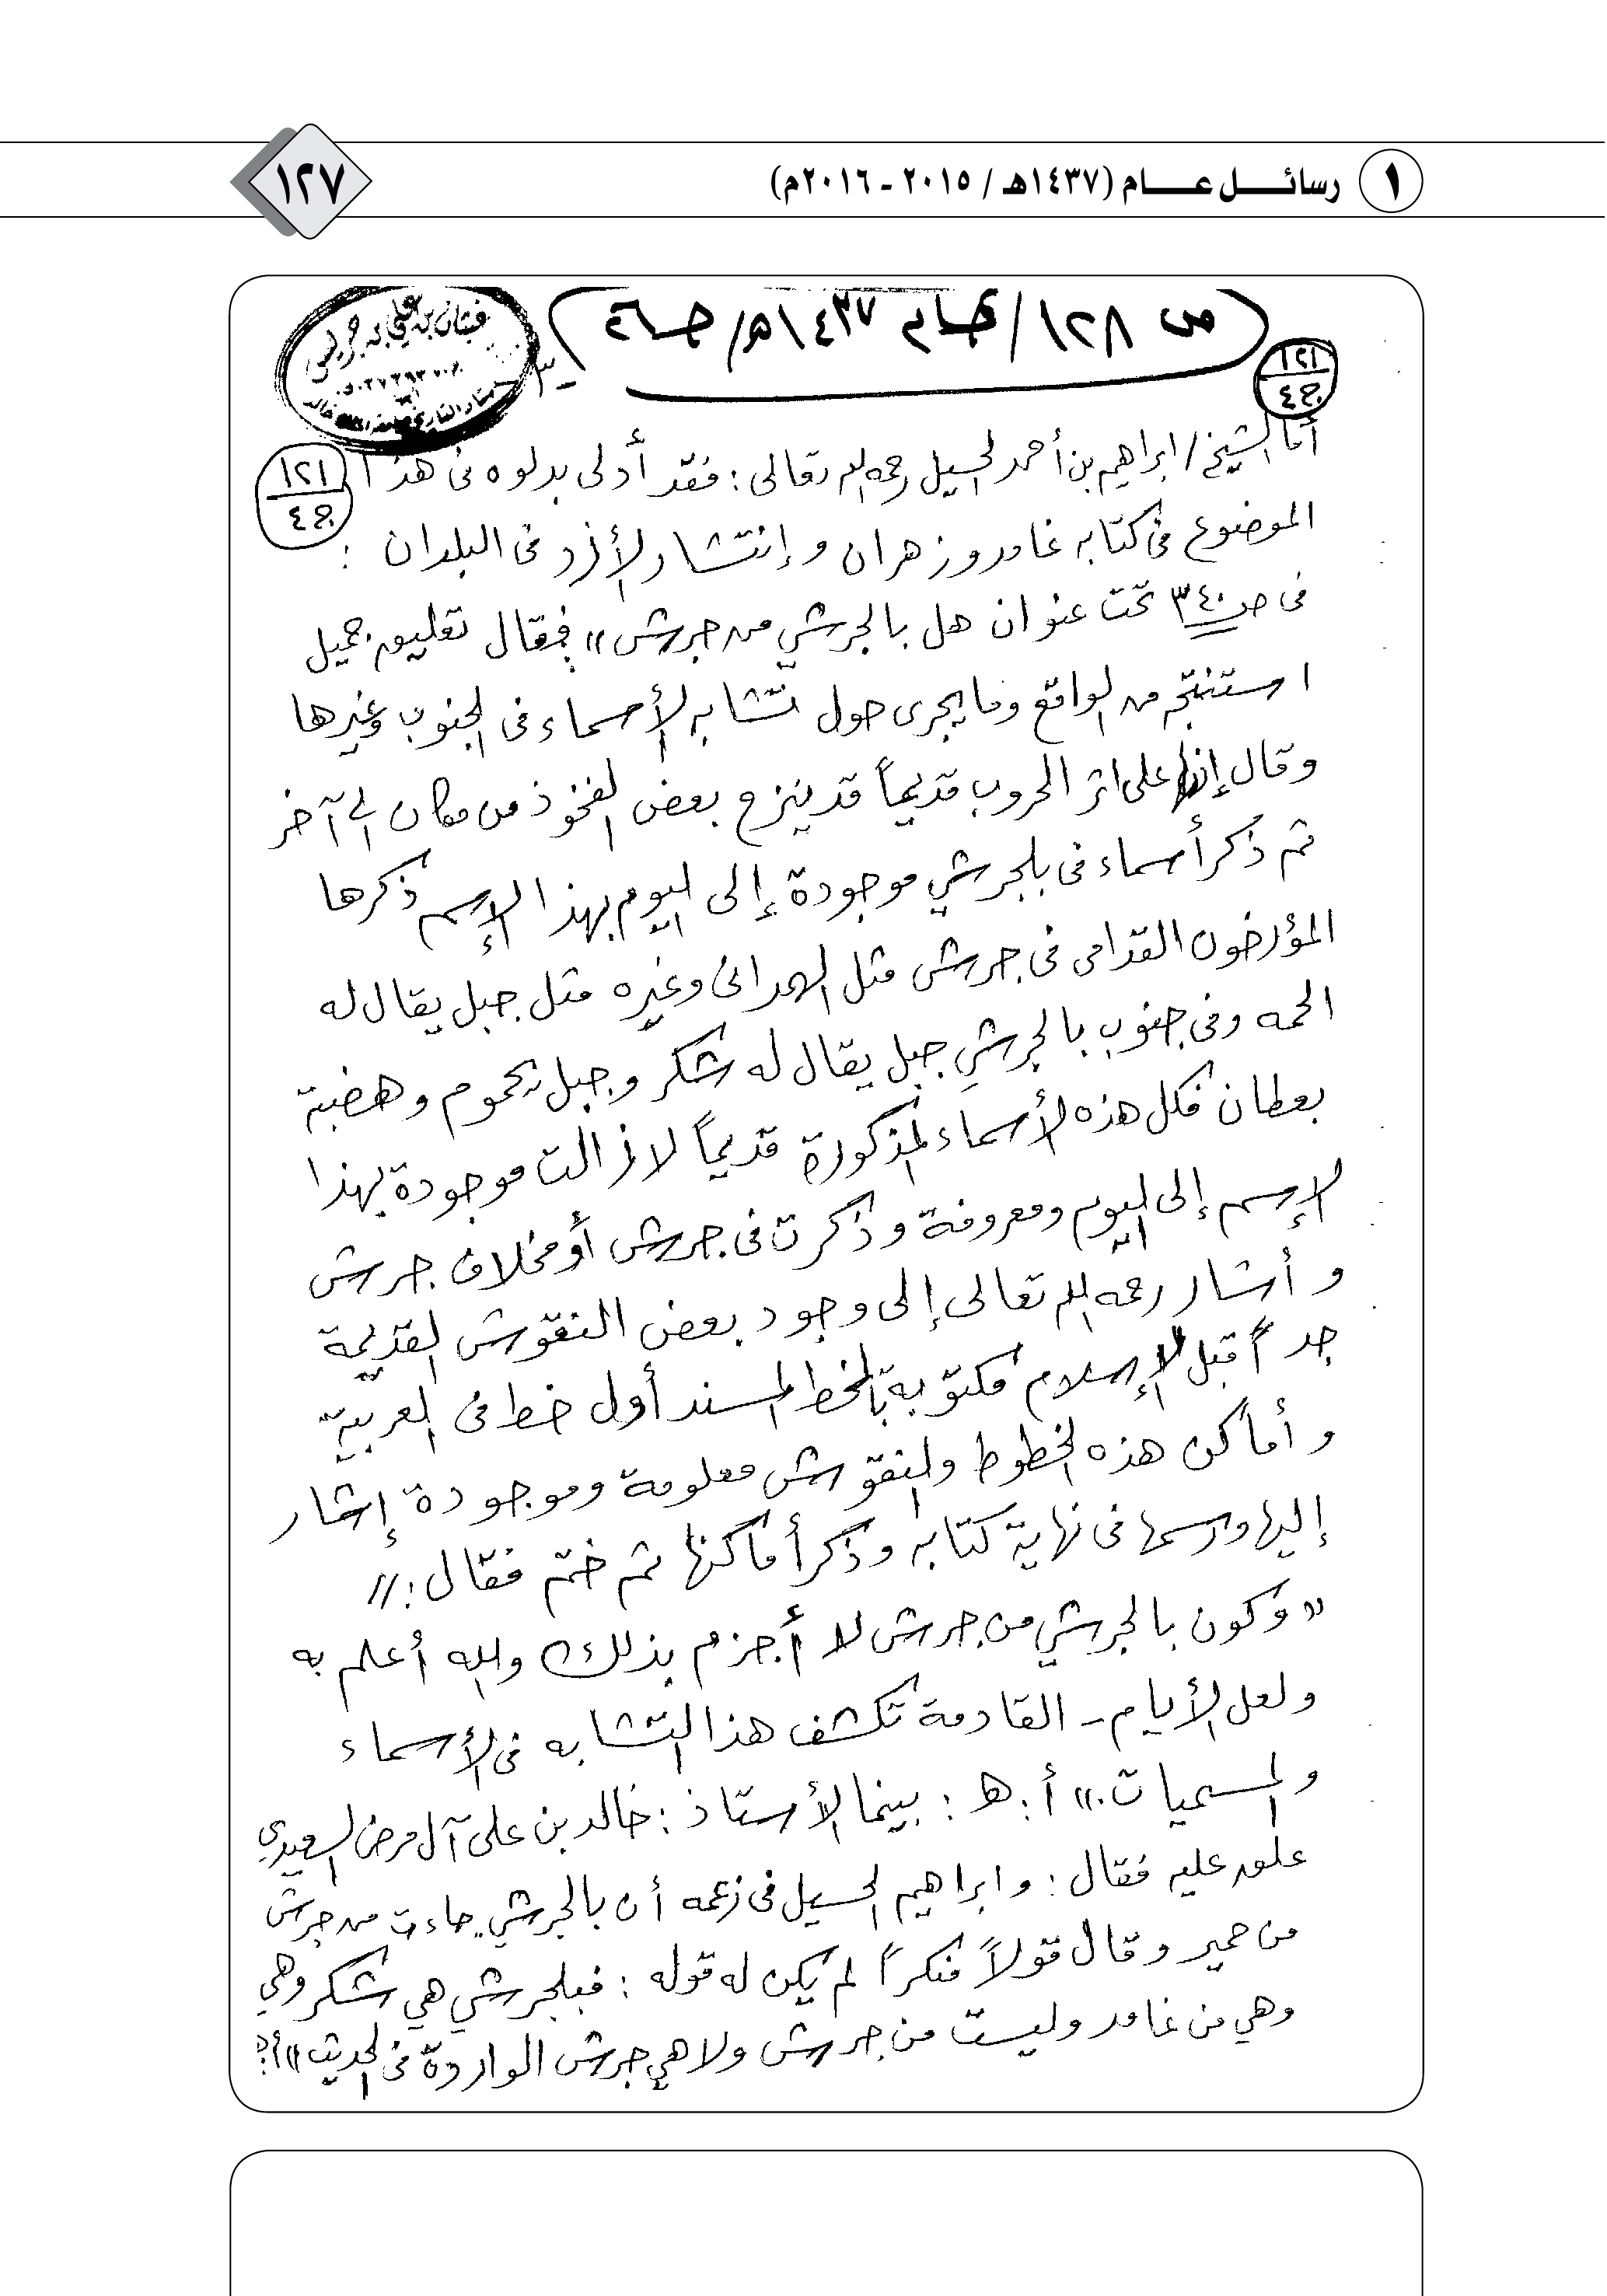 ١ رسائل عام (١٤٣٧هـ / ٢٠١٥ - ٢٠١٦م)
١٢٧
ص ١٢٨ / عام ١٤٣٧هـ /
١٢١
ج٤
غيثان بن علي بن جريس
- ٣ -
أما الشيخ / ابراهيم بن أحمد الحسيل رحمه الله تعالى : فقد أدلى بدلوه فى هذا
١٢١
ج٤
الموضوع فى كتابه غامد وزهران وإنتشار الأزد فى البلدان :
فى ص ٣٤٠ تحت عنوان هل بالجرشي من جرش » فقال تعليق جميل
استنتج من الواقع وما يجرى حول تشابه الأسماء فى الجنوب وغيرها
وقال إنه على اثر الحروب قديماً قد ينزح بعض الفخوذ من مكان الى آخر
ثم ذكر أسماء فى بلجرشي موجودة إلى اليوم بهذا الإسم ذكرها
المؤرخون القدامى فى جرش مثل الهمدانى وغيره مثل جبل يقال له
الحمه وفى جنوب بالجرشي جبل يقال له شكر وجبل يحموم وهضبة
بعطان فكل هذه الأسماء المذكورة قديماً لازالت موجودة بهذا
الإسم إلى اليوم ومعروفة وذكرت فى جرش أو مخلاف جرش
وأشار رحمه الله تعالى إلى وجود بعض النقوش القديمة
جداً قبل الإسلام مكتوبة بالخط المسند أول خط فى العربية
وأماكن هذه الخطوط والنقوش معلومة وموجودة إشار
إليها ورسمها فى نهاية كتابه وذكر أماكنها ثم ختم فقال : »
« وكون بالجرشي من جرش لا أجزم بذلك والله أعلم به
ولعل الأيام - القادمة تكشف هذا التشابه فى الأسماء
والمسميات . » أ . هـ : بينما الأستاذ : خالد بن على آل مرضي السعيدي
علق عليه فقال : وابراهيم الحسيل فى زعمه أن بالجرشي جاءت من جرش
من حمير وقال قولاً منكراً لم يكن له قوله : فبلجرشي هي شكر وهي
وهي من غامد وليست من جرش ولا هي جرش الواردة فى الحديث » أ.هـ